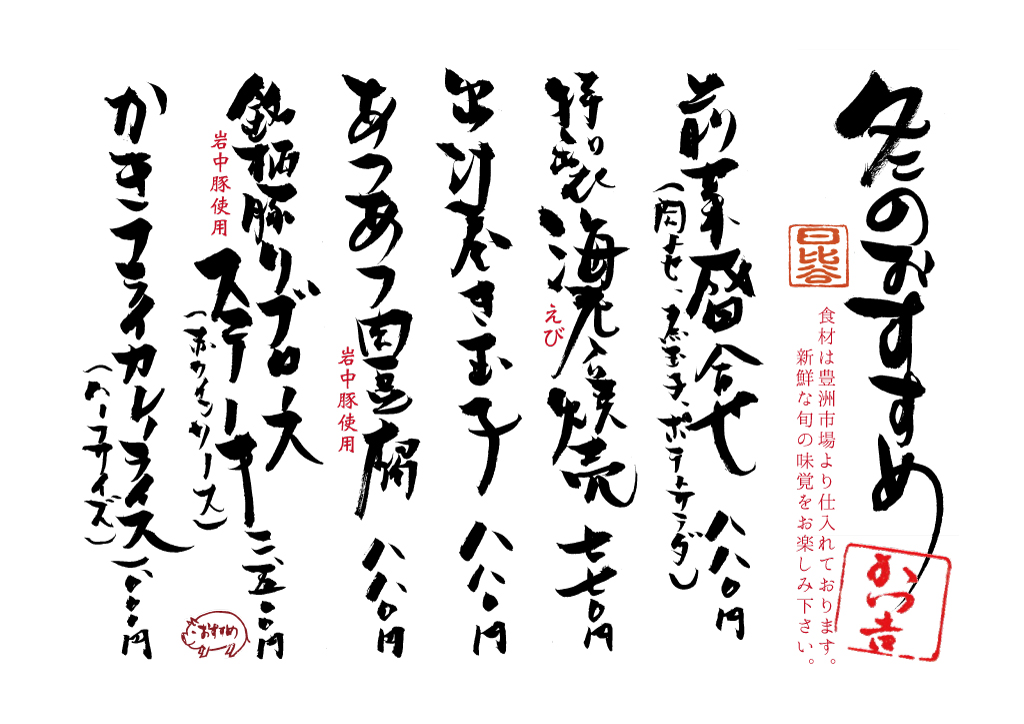 冬のおすすめ
かつ吉
日比谷
食材は豊洲市場より仕入れております。
新鮮な旬の味覚をお楽しみ下さい。
前菜盛合せ 八八〇円
(肉よせ、煮玉子、ポテトサラダ)
特製海老焼売 七七〇円
えび
出汁巻き玉子 八八〇円
あつあつ肉豆腐 八八〇円
岩中豚使用
銘柄豚リブロース
ステーキ 二、五〇〇円
岩中豚使用
(赤ワインソース)
おすすめ
かきフライカレーライス
(ハーフサイズ)